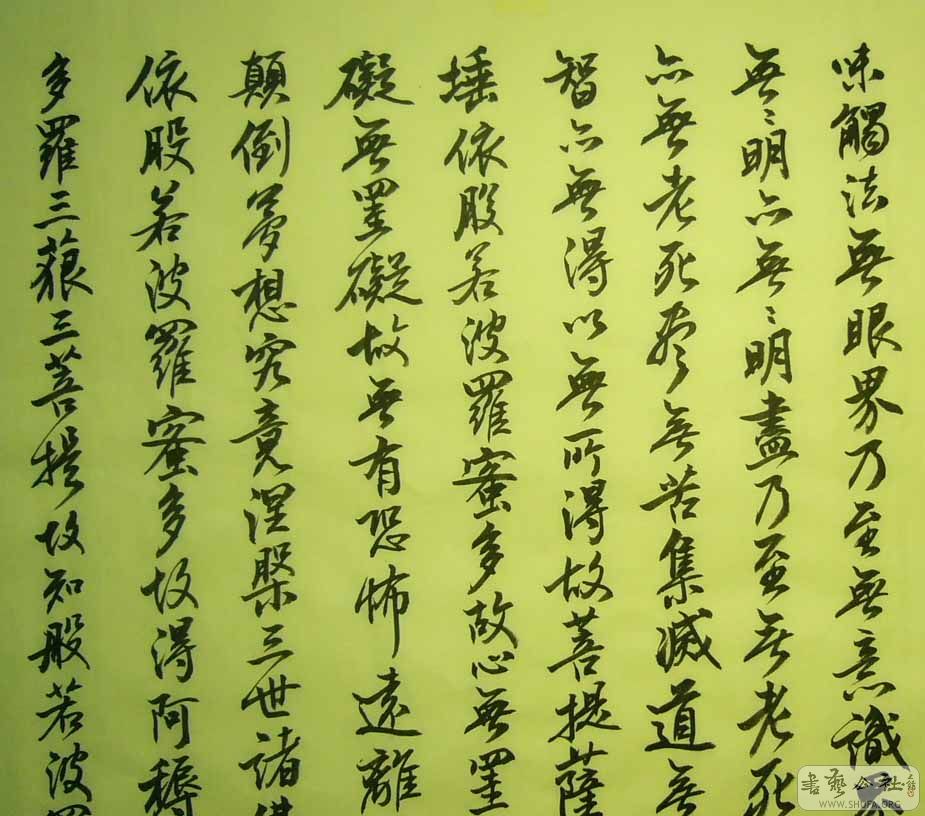 味觸法無眼界乃至無意識界
無〻明亦無〻明盡乃至無老死
亦無老死盡無苦集滅道無
智亦無得以無所得故菩提薩
埵依般若波羅蜜多故心無罣
礙無罣礙故無有恐怖遠離
顛倒夢想究竟涅槃三世諸佛
依般若波羅蜜多故得阿耨
多羅三藐三菩提故知般若波羅
書藝公社
WWW.SHUFA.ORG